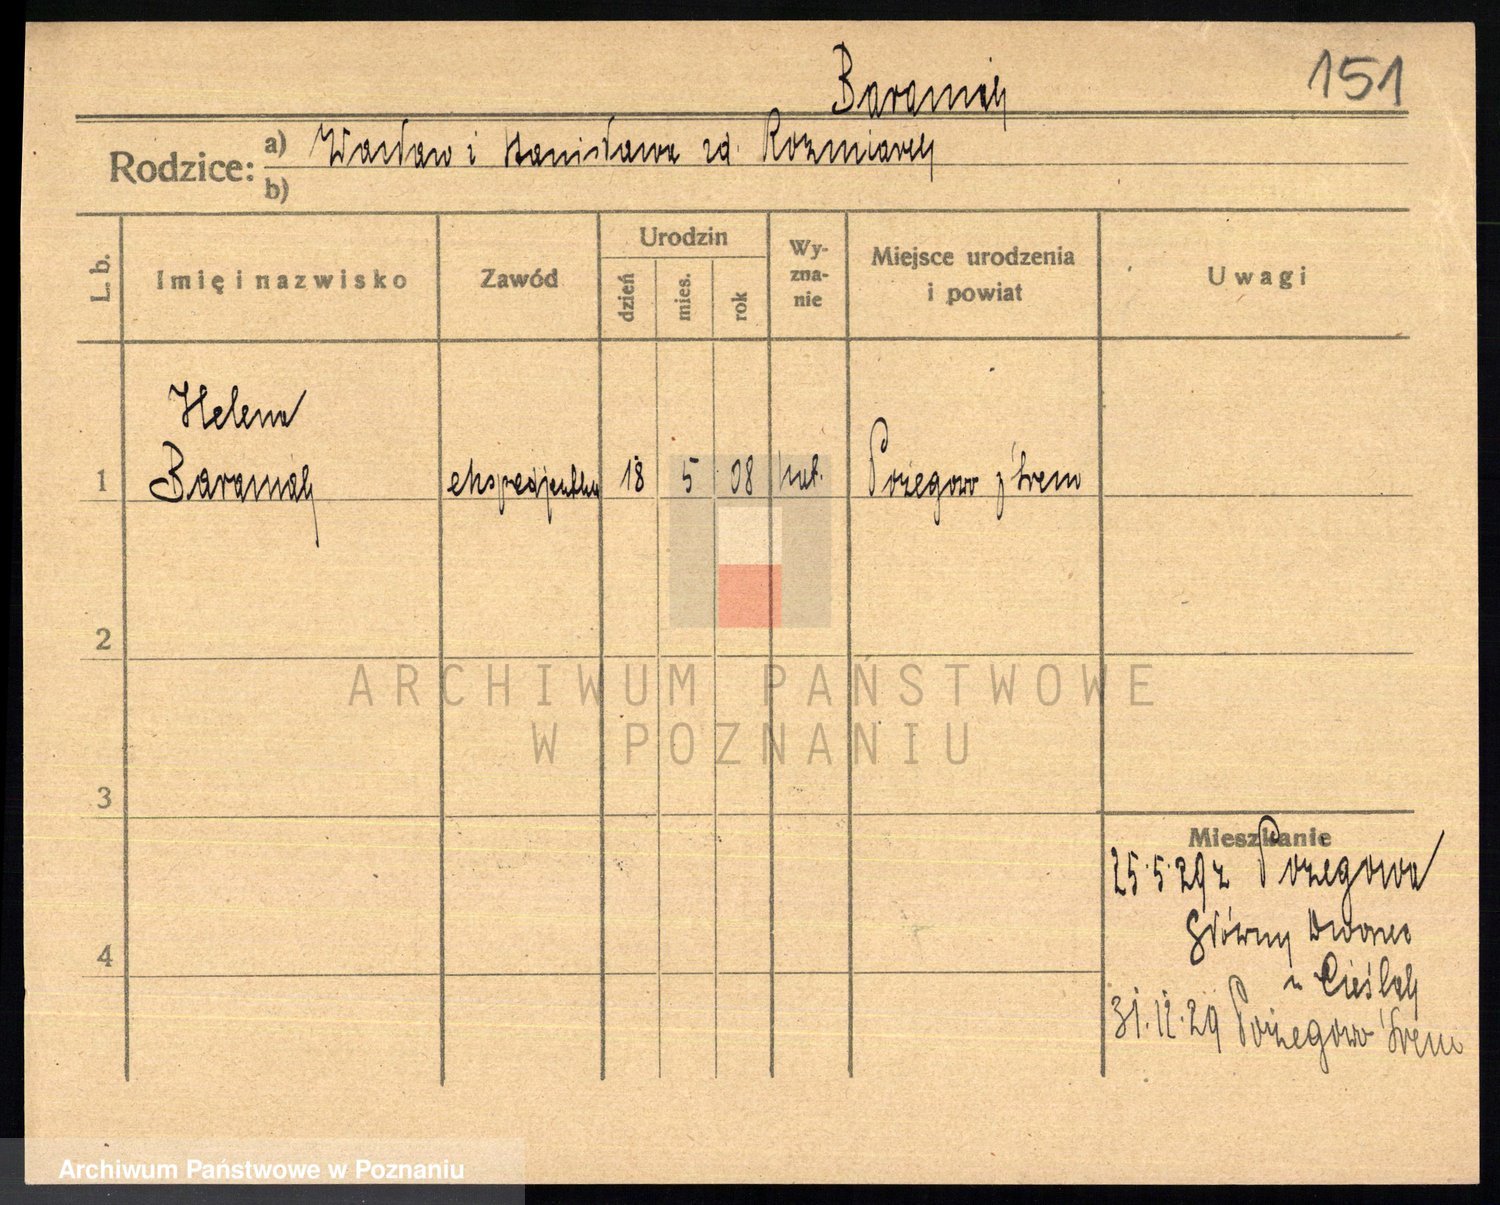 Baraniak
151
Rodzice: a) Wacław i Stanisława zd. Rozmiarek
b)
L. b.
Imię i nazwisko
Zawód
Urodzin
dzień
mies.
rok
Wy-
zna-
nie
Miejsce urodzenia
i powiat
Uwagi
Helena
1 Baraniak ekspedjentka 18 5 08 kat. Pożegowo p Śrem
2
3
4
Mieszkanie
25.5.29 z Pożegowa
Główny Dworzec
u Cieślak
31.12.29 Pożegowo Śrem
ARCHIWUM PAŃSTWOWE
W POZNANIU
Archiwum Państwowe w Poznaniu